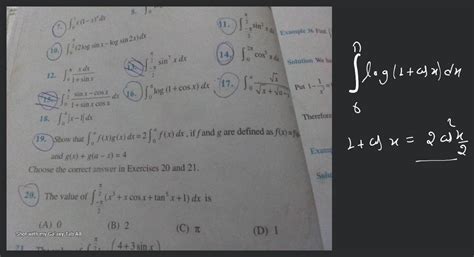 7. ∫₀¹ x(1−x)ⁿ dx
8. ∫₀
10. ∫₀^(π/2) (2 log sin x − log sin 2x) dx
11. ∫_(−π/2)^(π/2) sin² x
Example 36 Find
12. ∫₀^π x dx / (1 + sin x)
13. ∫_(−π/2)^(π/2) sin⁷ x dx
14. ∫₀^(2π) cos⁵ x dx
Solution We
15. ∫₀^(π/2) (sin x − cos x) / (1 + sin x cos x) dx
16. ∫₀^π log (1 + cos x) dx
17. ∫₀^a √x / (√x + √
Put
18. ∫₀⁴ |x − 1| dx
Therefore
19. Show that ∫₀^a f(x)g(x) dx = 2∫₀^a f(x) dx, if f and g are defined as f(x) =
and g(x) + g(a − x) = 4
Choose the correct answer in Exercises 20 and 21.
20. The value of ∫_(−π/2)^(π/2) (x³ + x cos x + tan⁵ x + 1) dx is
(A) 0 (B) 2 (C) π (D) 1
(4 + 3 sin x
∫₀^π log(1 + cos x) dx
1 + cos x = 2 cos² x/2